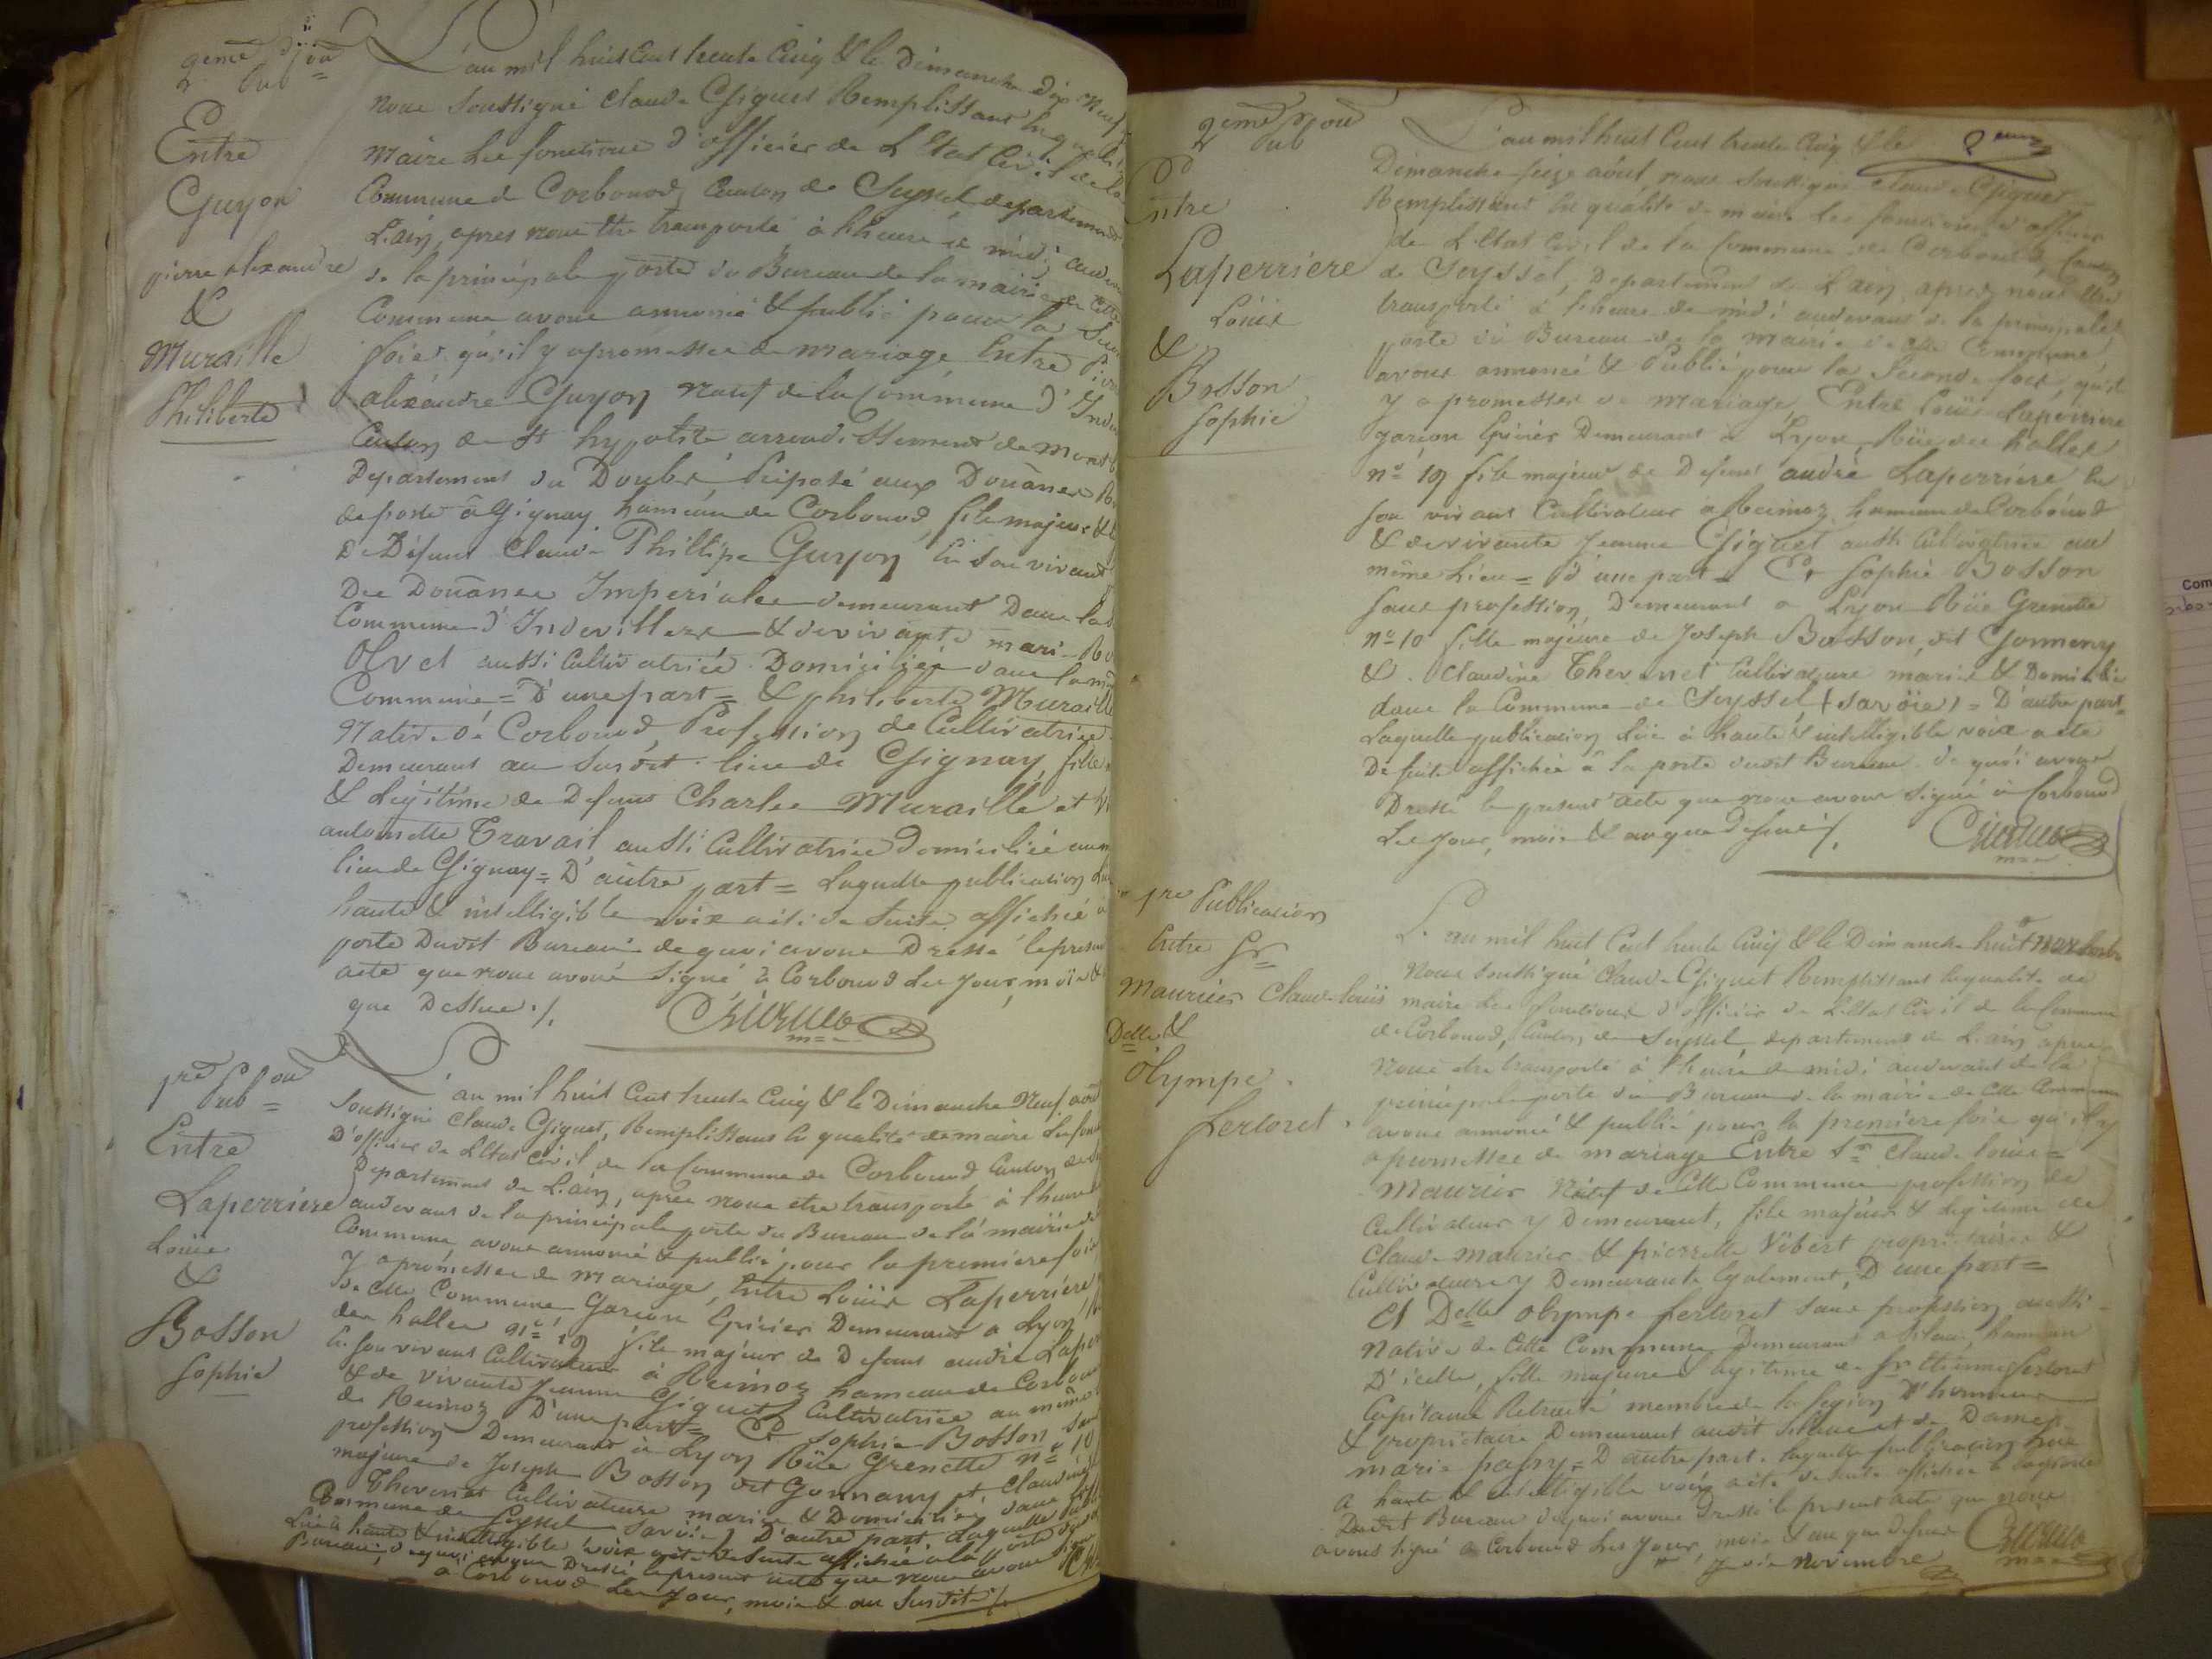 2eme P.on
Pub=
Entre
Guyon
pierre alexandre
&
Muraille
Philiberte
L'an mil huit Cent trente Cinq & le Dimanche dix Neuf
nous Soussigné Claude Giguet Remplissant la qualité
maire les fonctions d'officier de L'Etat Civil de la
Commune de Corbonod, Canton de Seyssel departement
L'ain, apres nous être transporté à l'heure de midi au devant
de la principale porte du Bureau de la mairie de Cette
Commune avons annoncé & publié pour la
fois qu'il y a promesses de mariage Entre
alexandre Guyon natif de la Commune d'
Canton de St hypolite arrondissement de
Departement du Doubs, Préposé aux Doüanes
de poste à Gignay hameau de Corbonod, fils majeur &
De Défunt Claude Phillipe Guyon En son vivant
Des Doüanes Imperiales demeurant Dans la
Commune d'Indevillers & de vivante marie
aussi Cultivatrice Domiciliée dans la
Commune = D'une part = & philiberte Muraille
Native de Corbonod, Profession de Cultivatrice
Demeurant au Susdit lieu de Gignay, fille
& Légitime de Defunt Charles Muraille et
antoinette Travail aussi Cultivatrice Domiciliée au
lieu de Gignay = D'autre part = Laquelle publication
haute & intelligible voix a été de Suite affiché à
porte Dudit Bureau de quoi avons Dressé le present
acte que nous avons Signé à Corbonod Les jour, mois &
que Dessus ./.
1re P.on
Pub=
Entre
Laperriere
Loüis
&
Bosson
Sophie
L'an mil huit Cent trente Cinq & le Dimanche Neuf août
Soussigné Claude Giguet, Remplissant la qualité de maire Les
D'officier de L'Etat Civil de la Commune de Corbonod Canton de
Departement de L'ain, après nous etre transporté à l'heure
audevant de la principale porte du Bureau de la mairie de
Commune avons annoncé & publié pour la premiere fois
y a promesses de mariage, Entre Loüis Laperriere
de Cette Commune Garcon Epicier Demeurant à Lyon
des halles nº 19 fils majeur de Defunt andré
En son vivant Cultivateur à Reimoz hameau de
& de vivante Jeanne Giguet Cultivatrice au même
de Reimoz D'une part = Et Sophie Bosson
profession Demeurant à Lyon Rüe Grenette nº 10
majeure de Joseph Bosson dit et Claudine
Thevenet Cultivateurs mariés & Domiciliés dans
Commune de Seyssel Savoie) D'autre part, Laquelle
Luë à haute & intelligible voix a été de Suite affichée à la porte
Bureau, de quoi avons Dressé le present acte que nous avons Signé
à Corbonod Les jour, mois & an Susdit ./.
2eme P.on
Pub
Entre
Laperriere
Loüis
&
Bosson
Sophie
L'an mil huit Cent trente Cinq & le
Dimanche Seize août, nous Soussigné Claude Giguet
Remplissant En qualité de maire Les fonctions d'officier
de L'Etat Civil de la Commune de Corbonod, Canton
de Seyssel, Departement de L'ain, après nous être
transporté à l'heure de midi audevant de la principale
porte du Bureau de la mairie de Cette Commune
avons annoncé & Publié pour la Seconde fois, qu'il
y a promesses de mariage, Entre Loüis Laperriere
garcon Epicier Demeurant à Lyon, Rüe des halles
nº 19 fils majeur de Defunt andré Laperriere En
son vivant Cultivateur à Reimoz hameau de Corbonod
& de vivante Jeanne Giguet aussi Cultivatrice au
même Lieu = D'une part = Et Sophie Bosson
Sans profession, Demeurant à Lyon Rüe Grenette
nº 10 fille majeure de Joseph Bosson, dit
& Claudine Thevenet Cultivateurs mariés & Domiciliés
dans la Commune de Seyssel (Savoie) = D'autre part =
Laquelle publication Luë à haute & intelligible voix a été
De Suite affichée à la porte dudit Bureau de quoi avons
Dressé le present acte que nous avons Signé à Corbonod
Les jour, mois & an que Dessus ./.
1re Publication
Entre Sr
Maurier Claude Loüis
& Delle
Olympe
Ferloret
L'an mil huit Cent trente Cinq & le Dimanche huit novembre
Nous Soussigné Claude Giguet Remplissant la qualité de
maire Les fonctions d'officier de L'Etat Civil de la Commune
de Corbonod, Canton de Seyssel departement de L'ain après
Nous être transporté à l'heure de midi audevant de la
principale porte du Bureau de la mairie de Cette Commune
avons annoncé & publié pour la premiere fois qu'il y
a promesses de mariage Entre Sr Claude Loüis =
Maurier Natif de Cette Commune profession de
Cultivateur y Demeurant, fils majeur & Légitime de
Claude Maurier & pierrette Vibert proprietaires &
Cultivateurs y Demeurants Egalement, D'une part =
Et Delle Olympe Ferloret Sans profession aussi
Native de Cette Commune Demeurant à hameau
D'icelle, fille majeure & Légitime de Sr Etienne Ferloret
Capitaine Retraité membre de la Légion D'honneur
& proprietaire Demeurant audit et de Dame
Marie = D'autre part. Laquelle publication Luë
à haute & intelligible voix a été de Suite affichée à la porte
Dudit Bureau de quoi avons Dressé le present acte que nous
avons Signé à Corbonod Les jour, mois & an que Dessus
novembre